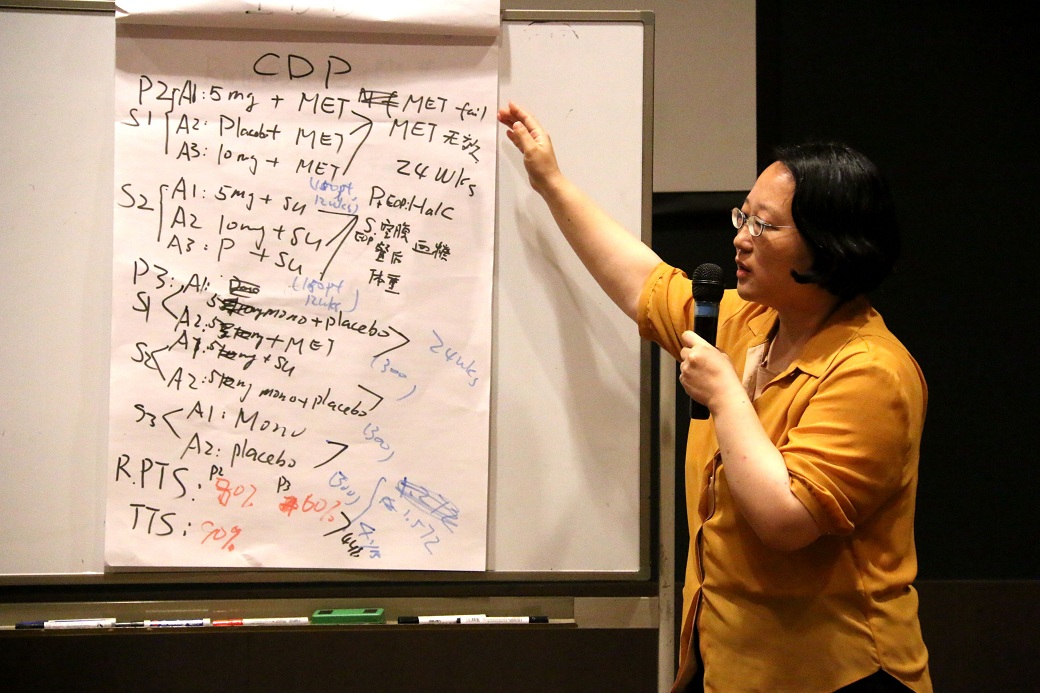 CDP
P2 A1: 5mg + MET MET fail
S1 A2: Placebo + MET MET 无效
A3: 10mg + MET 24 wks
(150pt 12wks)
S2 A1: 5mg + SU P. EOP: HbA1C
A2 10mg + SU S. EOP 空腹 血糖
A3: P + SU 餐后
体重
(150pt 12wks)
P3: A1:
S1 5mg mono + placebo
A2: 5mg + MET 24wks
S2 A1: 5mg + SU (300)
A2: 5mg mono + placebo
S3 A1: Mono (300)
A2: placebo
R.PTS: P2 80% P3 60% (300)
TTS: 90% 4yrs